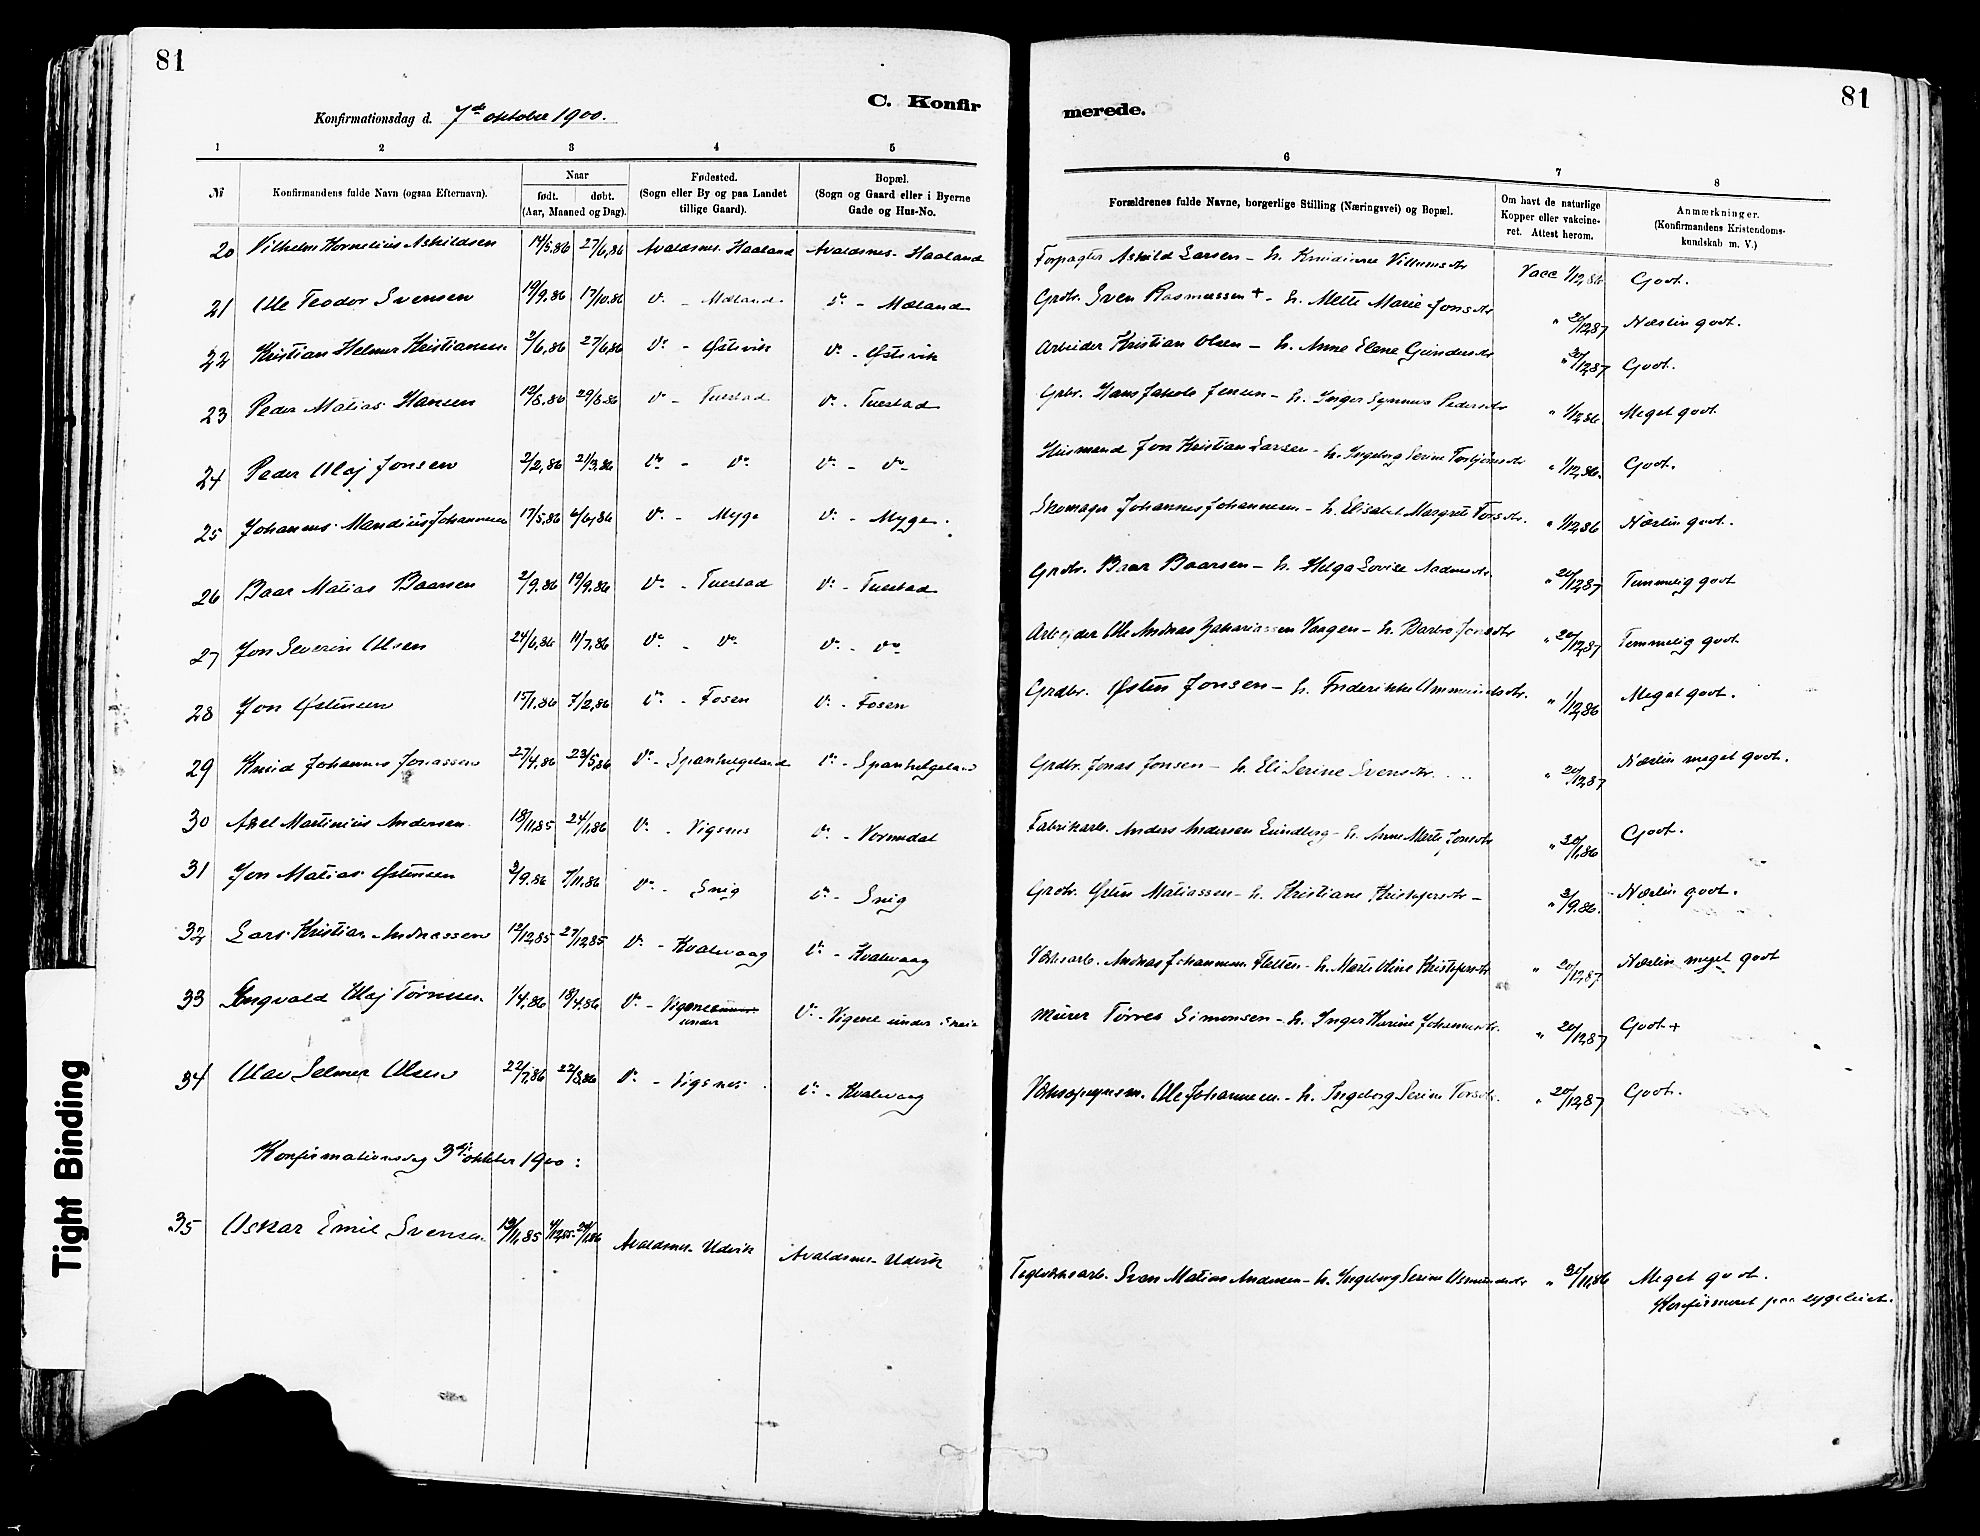 81
81
C. Konfir
merede.
Konfirmationsdag d. 7de oktober 1900.
1 2 3 4 5 6 7 8
№
Konfirmandens fulde Navn (ogsaa Efternavn).
Naar
født. døbt.
(Aar, Maaned og Dag).
Fødested.
(Sogn eller By og paa Landet
tillige Gaard).
Bopæl.
(Sogn og Gaard eller i Byerne
Gade og Hus-No.
Forældrenes fulde Navne, borgerlige Stilling (Næringsvei) og Bopæl.
Om havt de naturlige
Kopper eller vakcine-
ret. Attest herom.
Anmærkninger.
(Konfirmandens Kristendoms-
kundskab m. V.)
20 Vilhelm Kornelius Askildsen 14/5.86 27/6.86 Avaldsnes. Haaland Avaldsnes. Haaland Forpagter Askild Larsen - h. Knudianne Villumsdtr Vacc 1/12,86 Godt.
21 Ole Teodor Svensen 19/9.86 17/10.86 do - Mæland do - Mæland Grdbr. Sven Rasmussen + - h. Mette Marie Jonsdtr " 20/12,87 Næsten godt.
22 Kristian Helmer Kristiansen 2/6,86 27/6,86 do - Østevik do - Østevik Arbeider Kristian Olsen - h. Anne Elene Gundersdtr " 20/12,87 Godt.
23 Peder Matias Hansen 12/8.86 29/8.86 do - Tuestad do - Tuestad Grbr. Hans Jakob Jensen - h. Inger Synneva Pedersdtr " 1/12,86 Meget godt.
24 Peder Olaj Jonsen 2/2,86 21/3,86 do - do do - do Husmand Jon Kristian Larsen - h. Ingeborg Serine Torbjørnsdtr " 1/12,86. Godt.
25 Johannes Mandius Johannesen 17/5,86 6/6,86 do - Myge do - Myge. Skomager Johannes Johannesen - h. Elisabet Margrete Torsdtr. " 1/12,86 Næsten godt.
26 Baar Matias Baarsen 2/9.86 19/9.86 do - Tuestad do - Tuestad Grdbr. Baar Baarsen - h. Helga Lovise Aadensdtr. " 20/12,87 Temmelig godt
27 Jon Severin Olsen 24/6,86 11/7,86 do - do do - do Arbejder Ole Andreas Zakariassen Vaagen - h. Barbro Jonsdtr " 20/12,87 Temmelig godt
28 Jon Østensen 15/1.86 7/2,86 do - Fosen do - Fosen Grdbr. Østen Jonsen - h. Frederikke Ommundsdtr. " 1/12,86 Meget godt.
29 Knud Johannes Jonassen 27/4,86 23/5,86 do - Spanhelgeland do - Spanhelgeland Grdbr. Jonas Jonsen - h. Eli Serine Svensdtr. " 20/12,87 Næsten meget godt.
30 Axel Martinius Andersen 18/11,85 24/1,86 do - Vigsnes do - Vormedal Fabrikarb. Anders Andersen Lundberg - h. Anne Marte Jonsdtr " 30/1,86 Godt.
31 Jon Matias Østensen 2/9.86 7/11.86 do - Snig do - Snig Grdbr. Østen Matiassen - h. Kristiane Kristofersdtr - " 3/9,86. Næsten godt.
32 Lars Kristian Andreassen 12/12,85 27/12,85 do - Kvalevaag do - Kvalevaag Værksarb. Andreas Johannesen Fletten - h. Marte Oline Kristofersdtr " 20/12,87 Næsten meget godt
33 Ingvald Olaj Tørresen. 1/4,86 18/4,86 do - Vigene under do - Vigene under Murer Tørres Simonsen - h. Inger Karine Johannesdtr. " 20/12,87 Godt +
34 Olav Selmer Olsen 22/7,86 22/8,86 do - Vigsnes do - Kvalevaag Ole Johannesen - h. Ingeborg Serine Torsdtr. " 20/12,87 Godt.
Konfirmationsdag oktober 1900:
35 Oskar Emil Svensen. 13/11,85 4/12,85- 24/1,86 Avaldsnes. Udvik Avaldsnes. Udvik Teglværksarb. Sven Matias Andersen - h. Ingeborg Serine Osmundsdtr " 30/11,86 Meget godt.
Konfirmeret paa sygeleiet.
Tight Binding